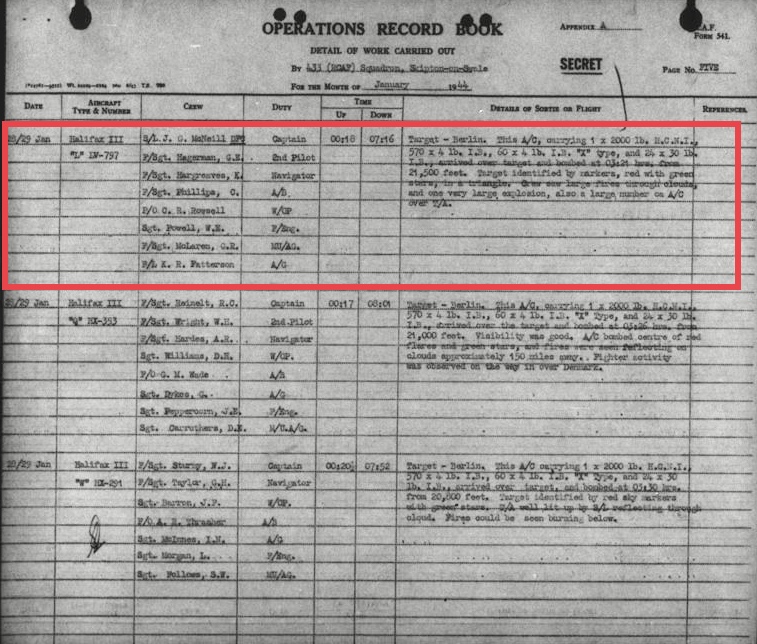 OPERATIONS RECORD BOOK
APPENDIX A
R.A.F. FORM 541.
DETAIL OF WORK CARRIED OUT
SECRET
By 433 (RCAF) Squadron, Skipton-on-Swale
PAGE No. FIVE
FOR THE MONTH OF January 1944
DATE AIRCRAFT TYPE & NUMBER CREW DUTY TIME UP DOWN DETAILS OF SORTIE OR FLIGHT REFERENCES
28/29 Jan Halifax III S/L J. G. McNeill DFC Captain 00:18 07:16 Target - Berlin. This A/C, carrying 1 x 2000 lb. H.C.N.I.,
"L" LV-797 F/Sgt. Hagerman, 2nd Pilot 570 x 4 lb. I.B., 60 x 4 lb. I.B. "X" type, and 24 x 30 lb.
I.B., arrived over target and bombed at 03:21 hrs. from
F/Sgt. Hargreaves, Navigator 21,500 feet. Target identified by markers, red with green
stars, in a triangle. Crew saw large fires through clouds,
F/Sgt. Phillips, C. A/B and one very large explosion, also a large number on A/C
over T/A.
F/O C. R. Rowsell W/OP
Sgt. Powell, W.E. F/Eng.
F/Sgt. McLaren, C.R. MU/AG.
F/L K. R. Patterson A/G
28/29 Jan Halifax III F/Sgt. Reinelt, R.C. Captain 00:17 08:01 Target - Berlin. This A/C, carrying 1 x 2000 lb. H.C.N.I.,
"Q" HX-353 F/Sgt. Wright, W.H. 2nd.Pilot 570 x 4 lb. I.B., 60 x 4 lb. I.B. "X" Type, and 24 x 30 lb.
I.B., arrived over the target and bombed at 03:26 hrs. from
F/Sgt. Hardes, A.R. Navigator 21,000 feet. Visibility was good. A/C bombed centre of red
flares and green stars, and fires were seen reflecting on
Sgt. Williams, D.H. W/OP. clouds approximately 150 miles away. Fighter activity
was observed on the way in over Denmark.
F/O G. M. Wade A/B
Sgt. Dykes, G. A/G
Sgt. Peppercorn, J.E. F/Eng.
Sgt. Carruthers, D.E. M/U.A/G.
28/29 Jan Halifax III F/Sgt. Sturdy, W.J. Captain 00:20½ 07:52 Target - Berlin. This A/C carrying 1 x 2000 lb. H.C.N.I.,
"W" HX-291 F/Sgt. Taylor, G.H. Navigator 570 x 4 lb. I.B., 60 x 4 lb. I.B. "X" Type, and 24 x 30
lb. I.B., arrived over target, and bombed at 03:30 hrs.
Sgt. Darron, J.F. W/OP. from 20,800 feet. Target identified by red sky markers
with green stars. T/A well lit up by S/L reflecting through
F/O A. R. Thrasher A/B cloud. Fires could be seen burning below.
Sgt. McInnes, I.N. A/G
Sgt. Morgan, L. F/Eng.
Sgt. Fellows, S.W. MU/AG.